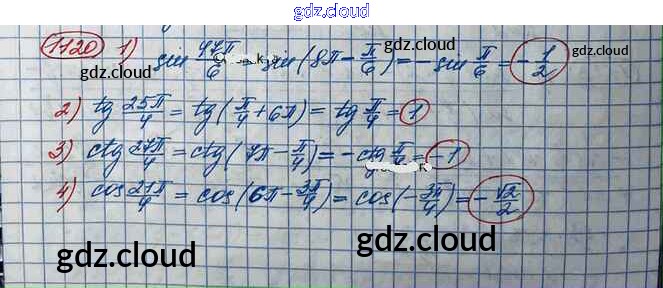 gdz.cloud
1120 1) sin 47π/6 = sin(8π - π/6) = - sin π/6 = - 1/2
gdz.cloud
gdz.cloud
2) tg 25π/4 = tg(π/4 + 6π) = tg π/4 = 1
3) ctg 27π/4 = ctg(7π - π/4) = - ctg π/4 = - 1
4) cos 21π/4 = cos(6π - 3π/4) = cos(- 3π/4) = - √2/2
gdz.cloud
gdz.cloud